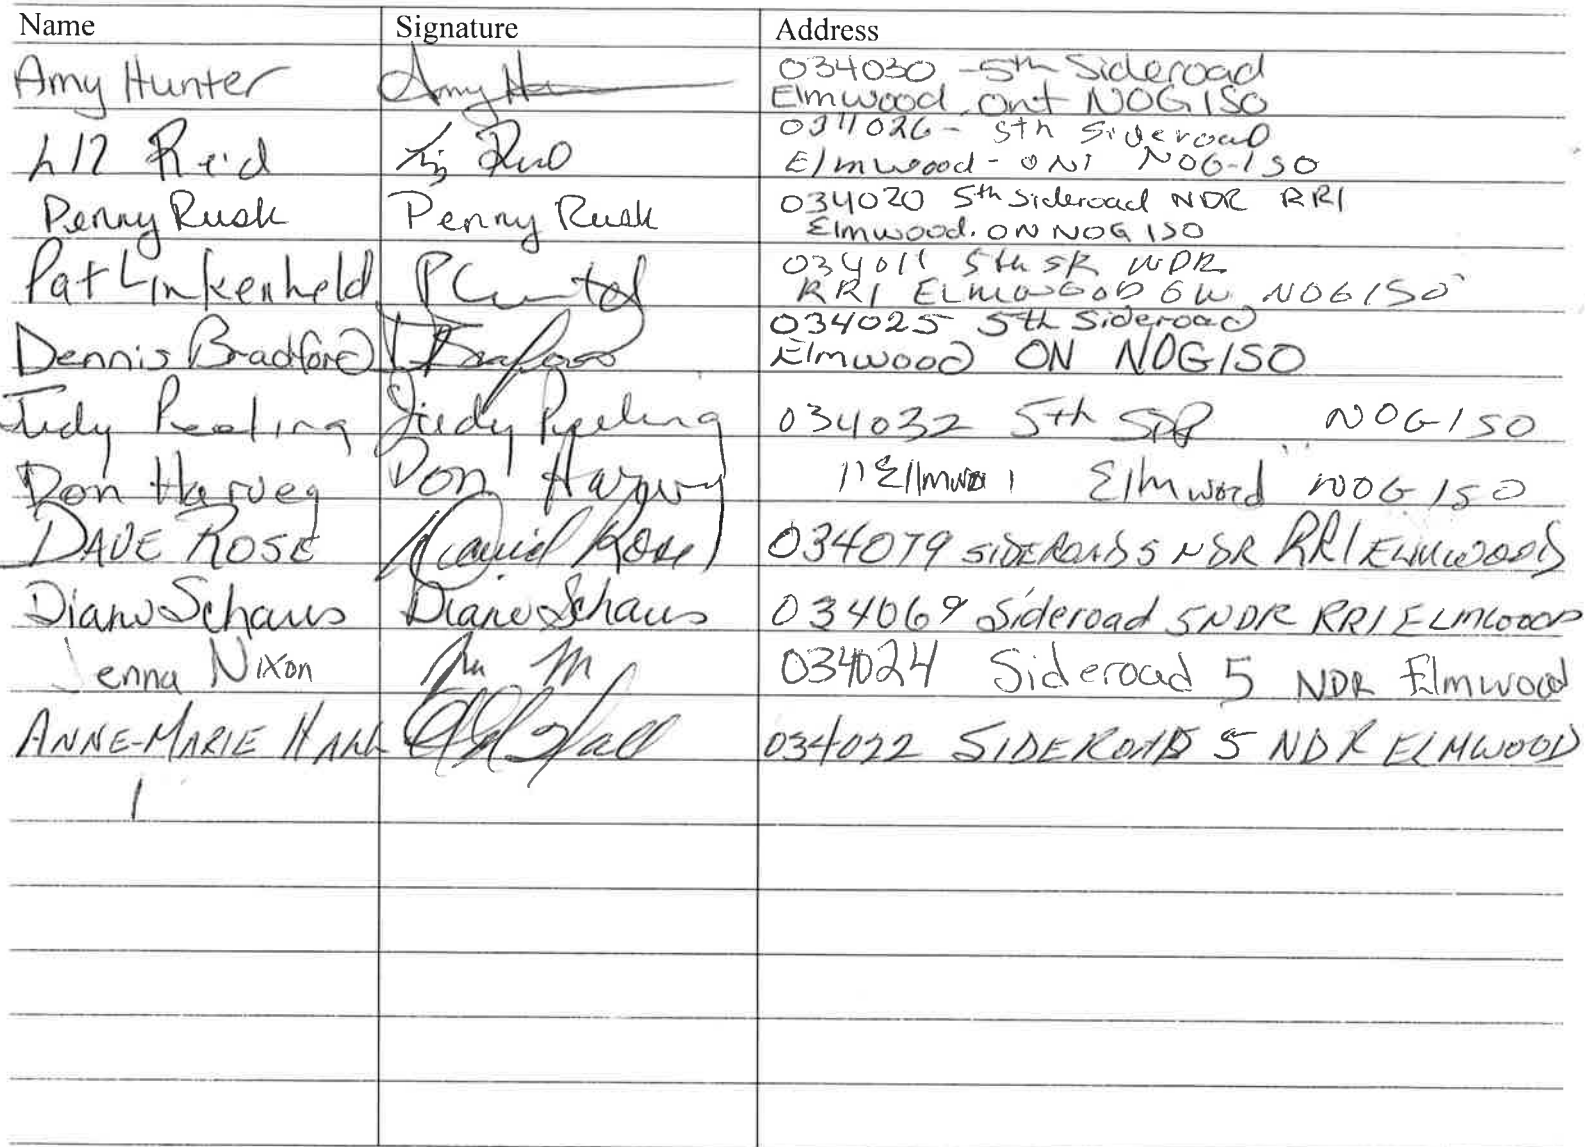 Name Signature Address
Amy Hunter Amy H 034030 -5th Sideroad
Elmwood, Ont N0G 1S0
Liz Reid Liz Reid 034026 - 5th Sideroad
Elmwood - ONT N0G-1S0
Penny Rusk Penny Rusk 034020 5th Sideroad NDR RR1
Elmwood. ON N0G 1S0
Pat Linkenheld 034011 5th SR NDR
RR1 ELMWOOD N0G 1S0
Dennis Bradford 034025 5th Sideroad
Elmwood ON N0G1S0
Judy Peeling Judy Peeling 034032 5th SDR N0G-1S0
Don Harvey Don Harvey Elmwood N0G 1S0
DAVE ROSE David Rose 034079 SIDEROAD 5 NDR RR1 ELMWOOD
Diane Schaus Diane Schaus 034069 Sideroad 5NDR RR1 ELMWOOD
Jenna Nixon 034024 Sideroad 5 NDR Elmwood
ANNE-MARIE HALL Hall 034022 SIDEROAD 5 NDR ELMWOOD